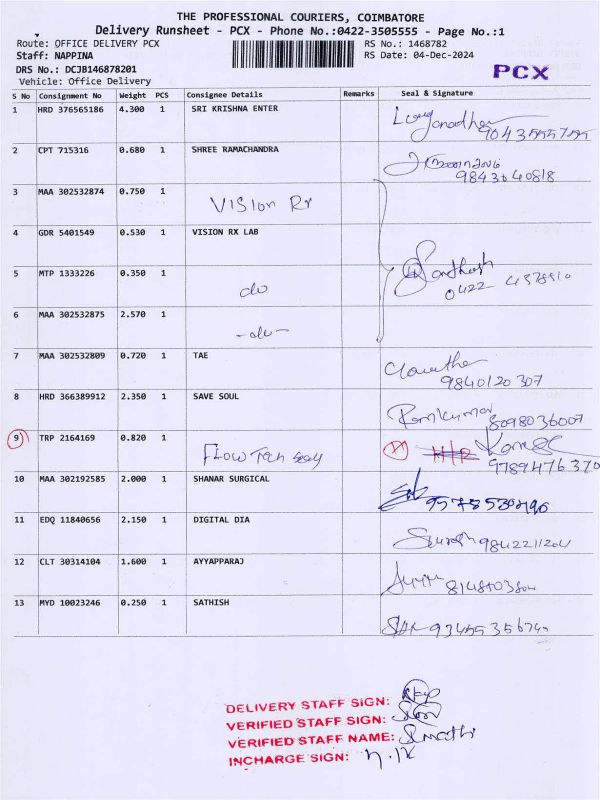 THE PROFESSIONAL COURIERS, COIMBATORE
Delivery Runsheet - PCX - Phone No.:0422-3505555 - Page No.:1
Route: OFFICE DELIVERY PCX
RS No.: 1468782
Staff: NAPPINA
RS Date: 04-Dec-2024
DRS No.: DCJB146878201
PCX
Vehicle: Office Delivery
S No Consignment No Weight PCS Consignee Details Remarks Seal & Signature
1 HRD 376565186 4.300 1 SRI KRISHNA ENTER
2 CPT 715316 0.680 1 SHREE RAMACHANDRA
9843640818
3 MAA 302532874 0.750 1 VISION Rx
4 GDR 5401549 0.530 1 VISION RX LAB
5 MTP 1333226 0.350 1 do
Santhosh
0422
6 MAA 302532875 2.570 1 -do-
7 MAA 302532809 0.720 1 TAE
9840120307
8 HRD 366389912 2.350 1 SAVE SOUL
Ramkumar 8098036007
9 TRP 2164169 0.820 1 Flow Tech
9789476370
10 MAA 302192585 2.000 1 SHANAR SURGICAL
11 EDQ 11840656 2.150 1 DIGITAL DIA
Suresh 9842211204
12 CLT 30314104 1.600 1 AYYAPPARAJ
13 MYD 10023246 0.250 1 SATHISH
DELIVERY STAFF SIGN:
VERIFIED STAFF SIGN:
VERIFIED STAFF NAME: Smathi
INCHARGE SIGN: